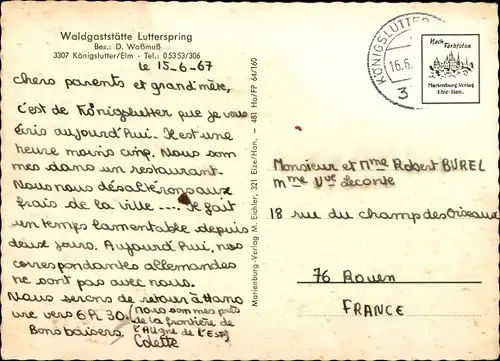 Waldgaststätte Lutterspring
Bes.: D. Waßmuß
3307 Königslutter/Elm - Tel.: 05353/306
le 15-6-67
chers parents et grand'mère,
c'est de Königslutter que je vous
écris aujourd'hui. Il est une
heure moins cinq. Nous som
mes dans un restaurant.
Nous nous désaltérons aux
frais de la ville .... Il fait
un temps lamentable depuis
deux jours. Aujourd'hui, nos
correspondantes allemandes
ne sont pas avec nous.
Nous serons de retour à Hano
vre vers 6h 30. (nous sommes près
de la frontière de
l'Allgne de l'Est)
Bons baisers.
Colette
Marienburg-Verlag M. Eichler, 321 Elze/Han. — 481 Ha/FP 64/160
KÖNIGSLUTTER
16.6.
3
Nach
Farbfotos
Marienburg-Verlag
Elze-Han.
Monsieur et Mme Robert BUREL
Mme Vve Leconte
18 rue du champ des Oiseaux
76 Rouen
FRANCE